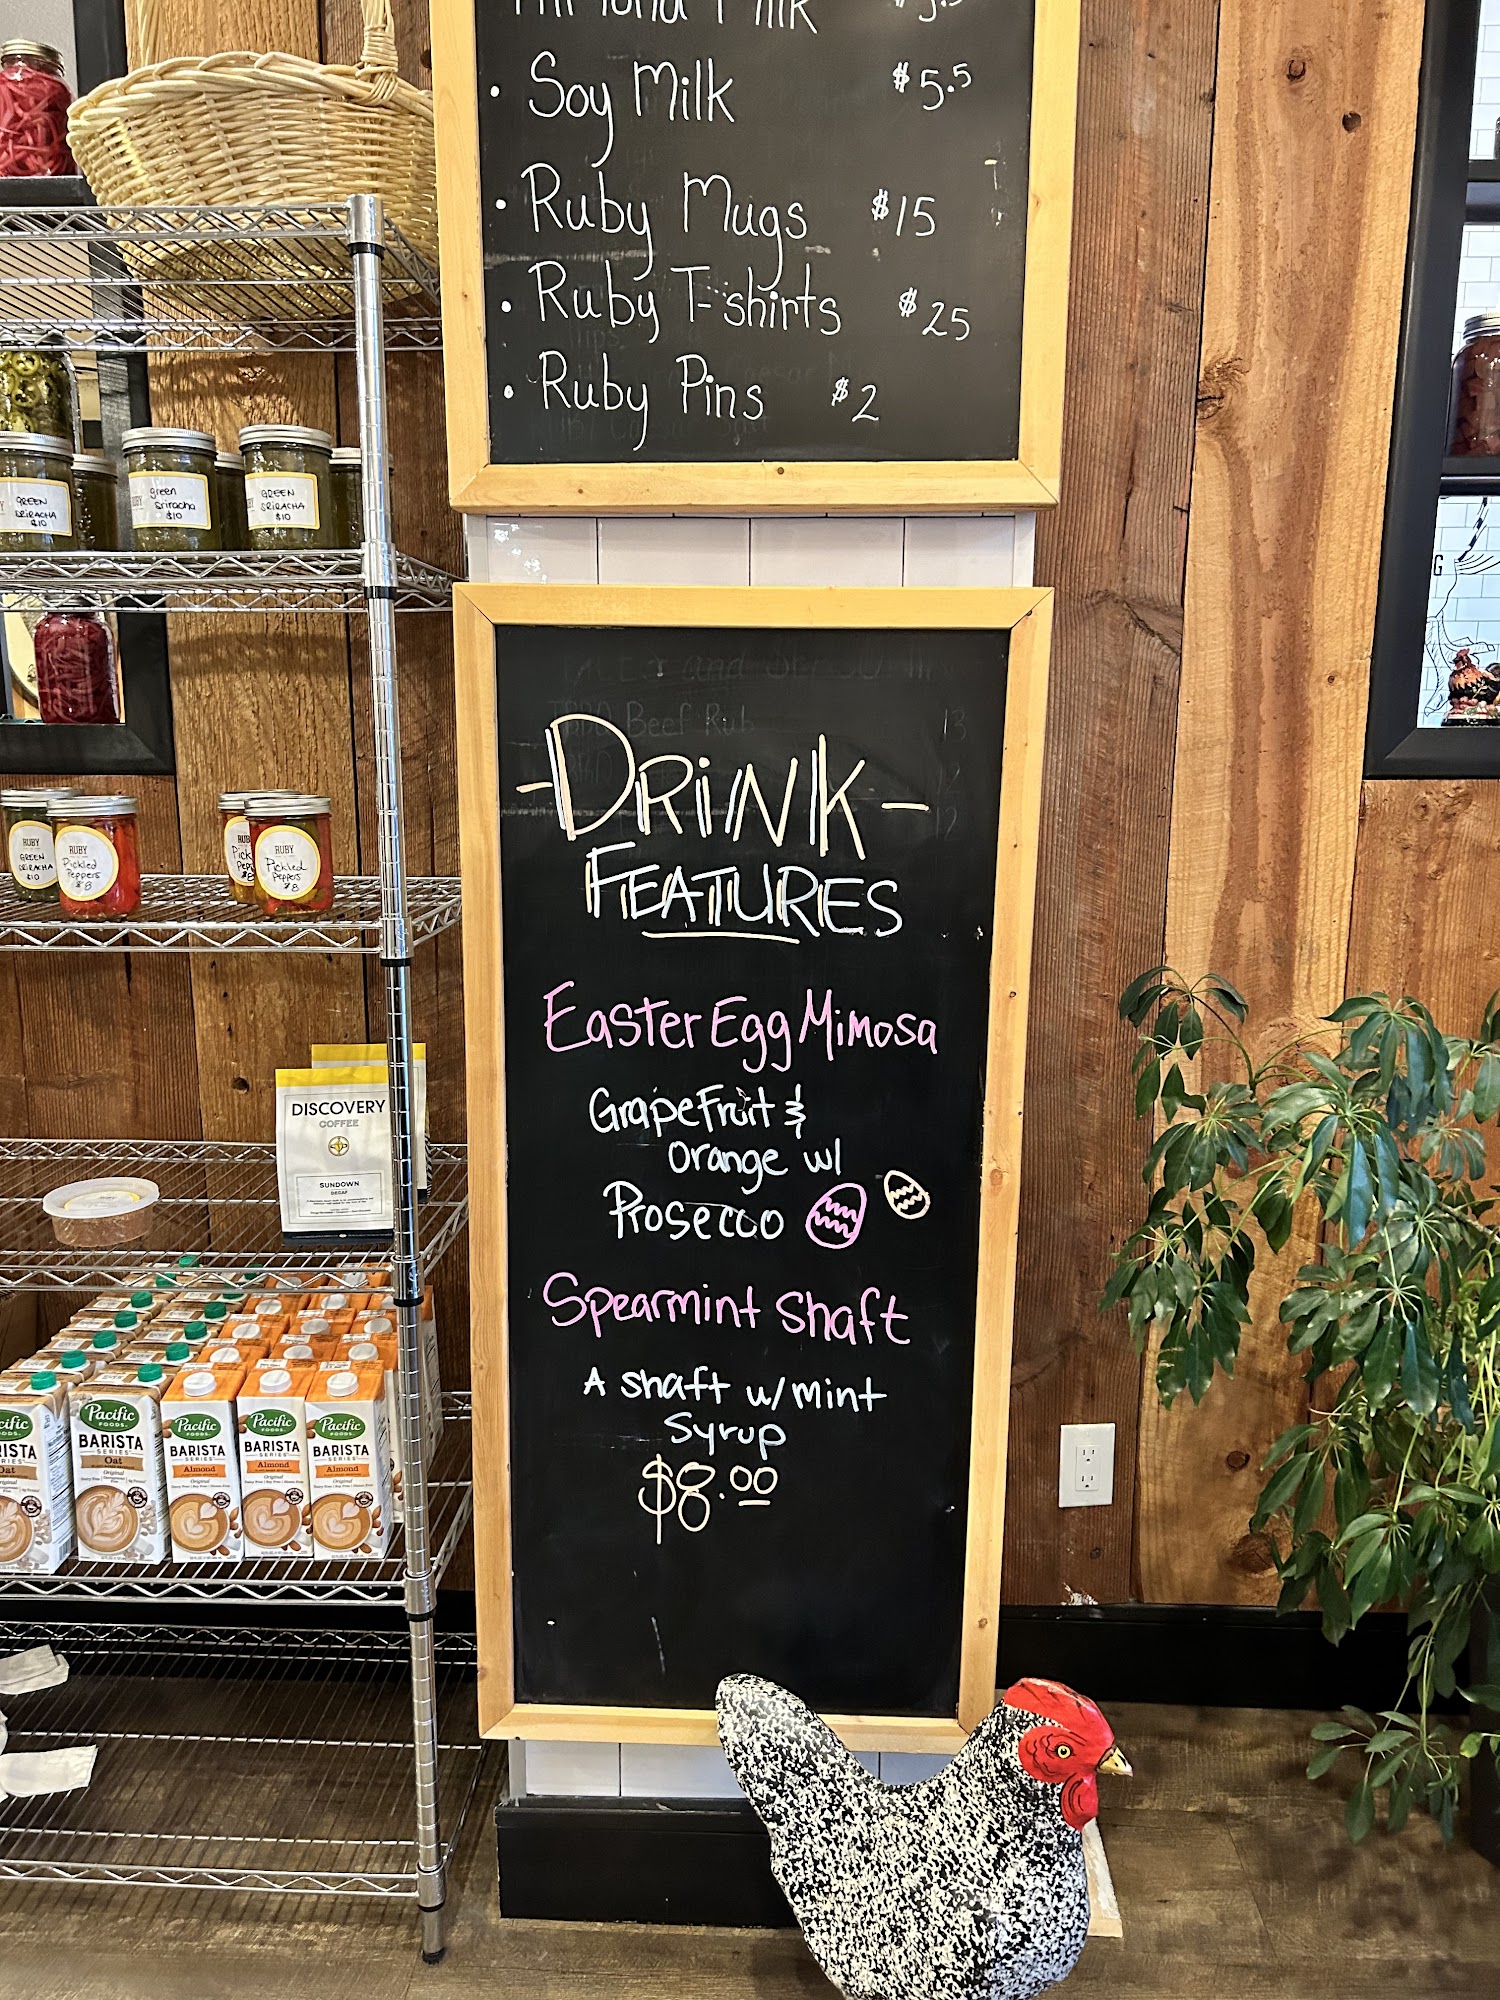 Almond Milk $5.5
• Soy Milk $5.5
• Ruby Mugs $15
• Ruby T-shirts $25
• Ruby Pins $2
GREEN
SRIRACHA
$10
green
Sriracha
$10
GREEN
SRIRACHA
$10
BBQ Beef Rub 13
-DRiNK-
FEATURES
RUBY
GREEN
SRIRACHA
$10
RUBY
Pickled
Peppers
$8
RUBY
Pickled
Peppers
$8
Easter Egg Mimosa
GrapeFruit &
orange w/
Prosecco
Spearmint Shaft
A shaft w/ mint
Syrup
$8.00
DISCOVERY
COFFEE
SUNDOWN
DECAF
Pacific
FOODS
BARISTA
SERIES
Oat
Original
Pacific
FOODS
BARISTA
SERIES
Almond
Original
Pacific
FOODS
BARISTA
SERIES
Almond
Original
Pacific
FOODS
BARISTA
SERIES
Almond
Original